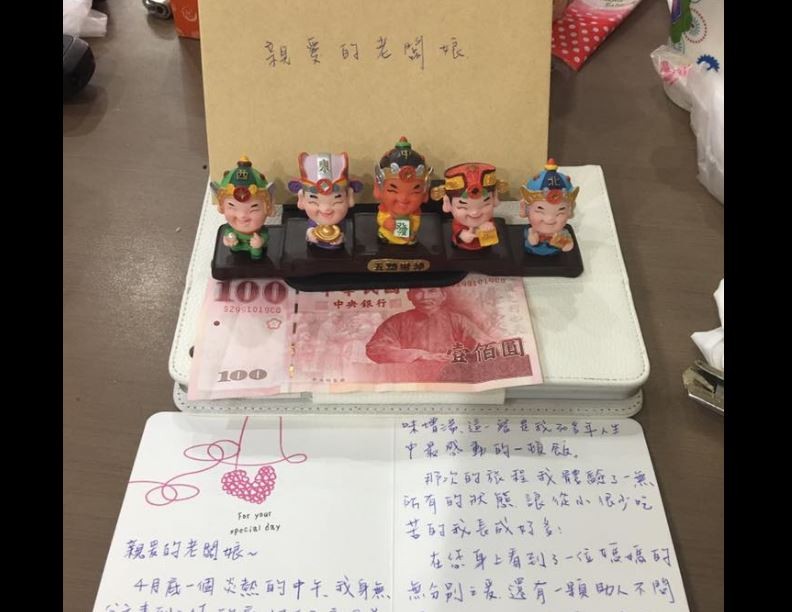 親愛的老闆娘
西
東
中
北
五路財神
100
中華民國
中央銀行
壹佰圓
100
For your
special day
親愛的老闆娘~
4月底一個炎熱的中午,我身無
味增湯,這一
中最感動的一頓飯。
那次的旅程我體驗了一無
所有的狀態,讓從小很少吃
苦的我長成好多!
在您身上看到了一位媽媽的
無分別之愛,還有一顆助人不問